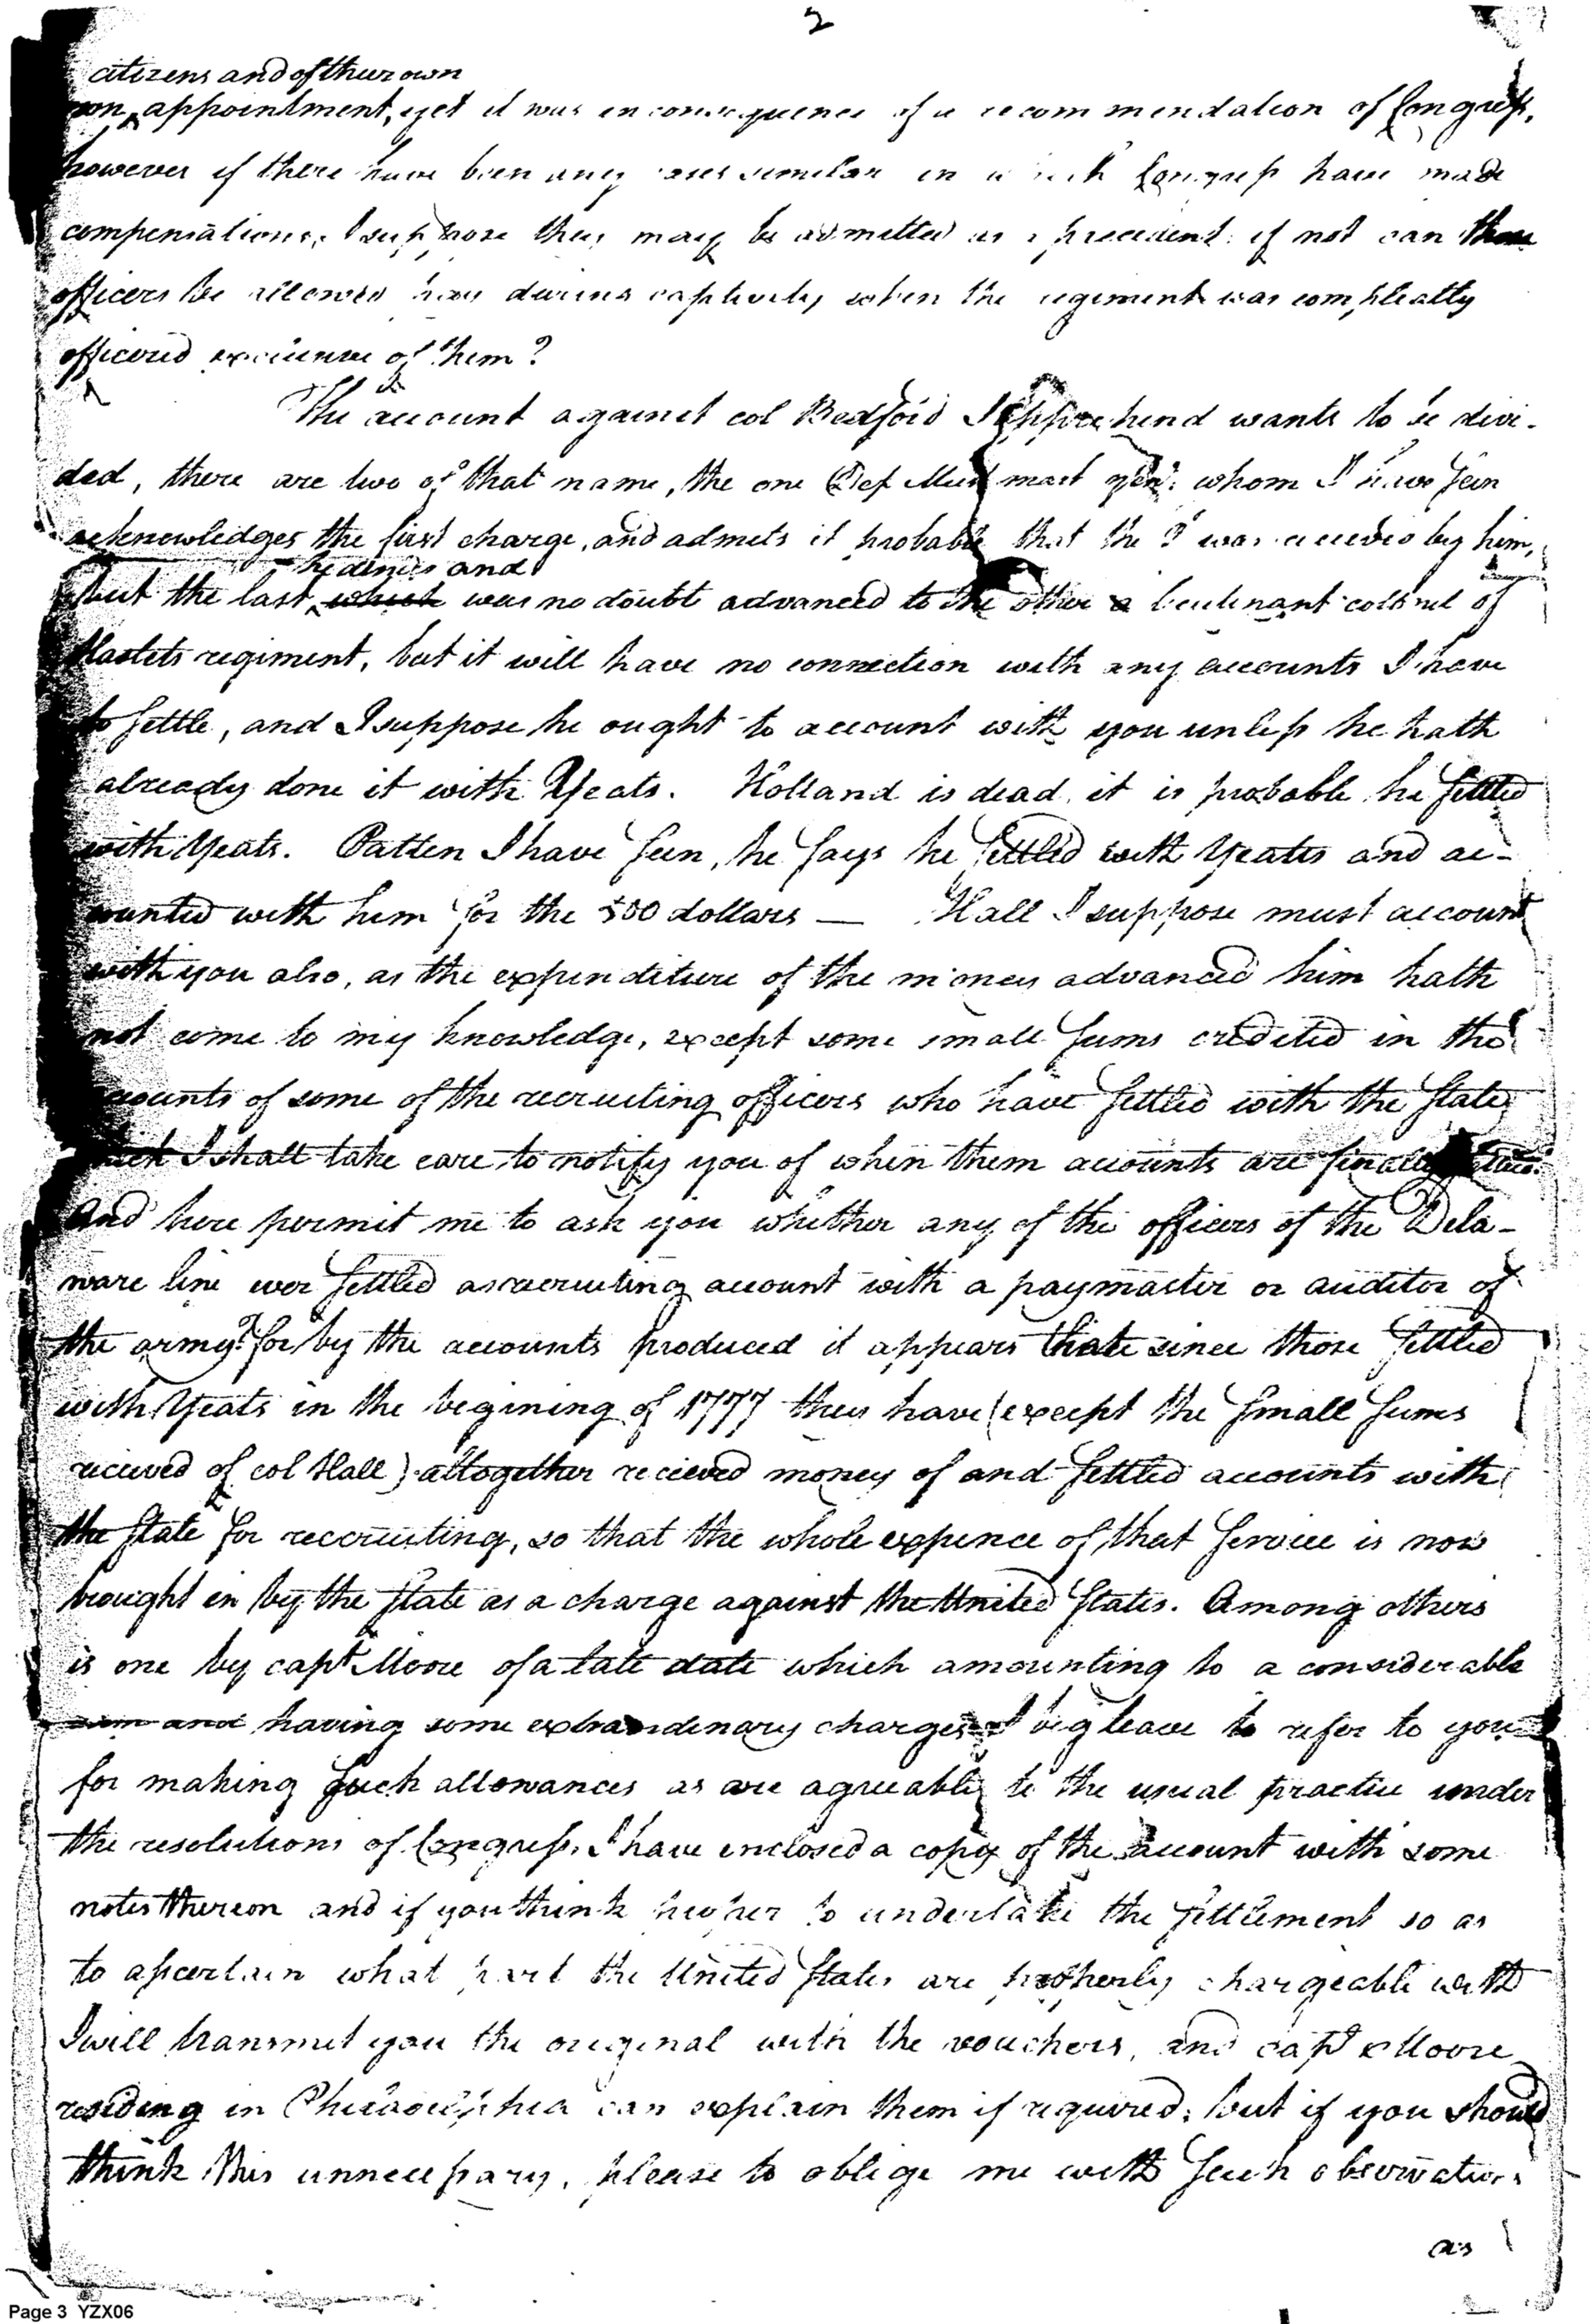 2
citizens and of their own
appointment, yet it was in consequence of a recommendation of Congress,
however if there have been any cases similar in which Congress have made
compensations, I suppose they may be admitted as a precedent; if not can these
officers be allowed pay during captivity when the regiment was compleatly
officered exclusive of them?
The account against col Bedford I apprehend wants to be divi-
ded, there are two of that name, the one Dep Must mast gen: whom I have seen
acknowledges the first charge, and admits it probable that the 2d was recieved by him,
he denies and
but the last which was no doubt advanced to the other a lieutenant colonel of
Haslets regiment, but it will have no connection with any accounts I have
to settle, and I suppose he ought to account with you unless he hath
already done it with Yeats. Holland is dead, it is probable he settled
with Yeats. Patten I have seen, he says he settled with Yeates and ac-
counted with him for the 500 dollars — Hall I suppose must account
with you also, as the expenditure of the money advanced him hath
not come to my knowledge, except some small sums credited in the
accounts of some of the recruiting officers who have settled with the State
which I shall take care to notify you of when them accounts are finally settled.
And here permit me to ask you whether any of the officers of the Dela-
ware line ever settled a recruiting account with a paymaster or auditor of
the army? for by the accounts produced it appears that since those settled
with Yeats in the begining of 1777 they have (except the small sums
recieved of col Hall) altogether recieved money of and settled accounts with
the State for recruiting, so that the whole expence of that service is now
brought in by the State as a charge against the United States. Among others
is one by capt Moore of a late date which amounting to a considerable
sum and having some extraordinary charges I beg leave to refer to you
for making such allowances as are agreeable to the usual practice under
the resolutions of Congress. I have inclosed a copy of the account with some
notes thereon and if you think proper to undertake the settlement so as
to ascertain what part the United States are properly chargeable with
I will transmit you the original with the vouchers, and capt Moore
residing in Philadelphia can explain them if required; but if you should
think this unnecessary, please to oblige me with such observations
as
Page 3 YZX06